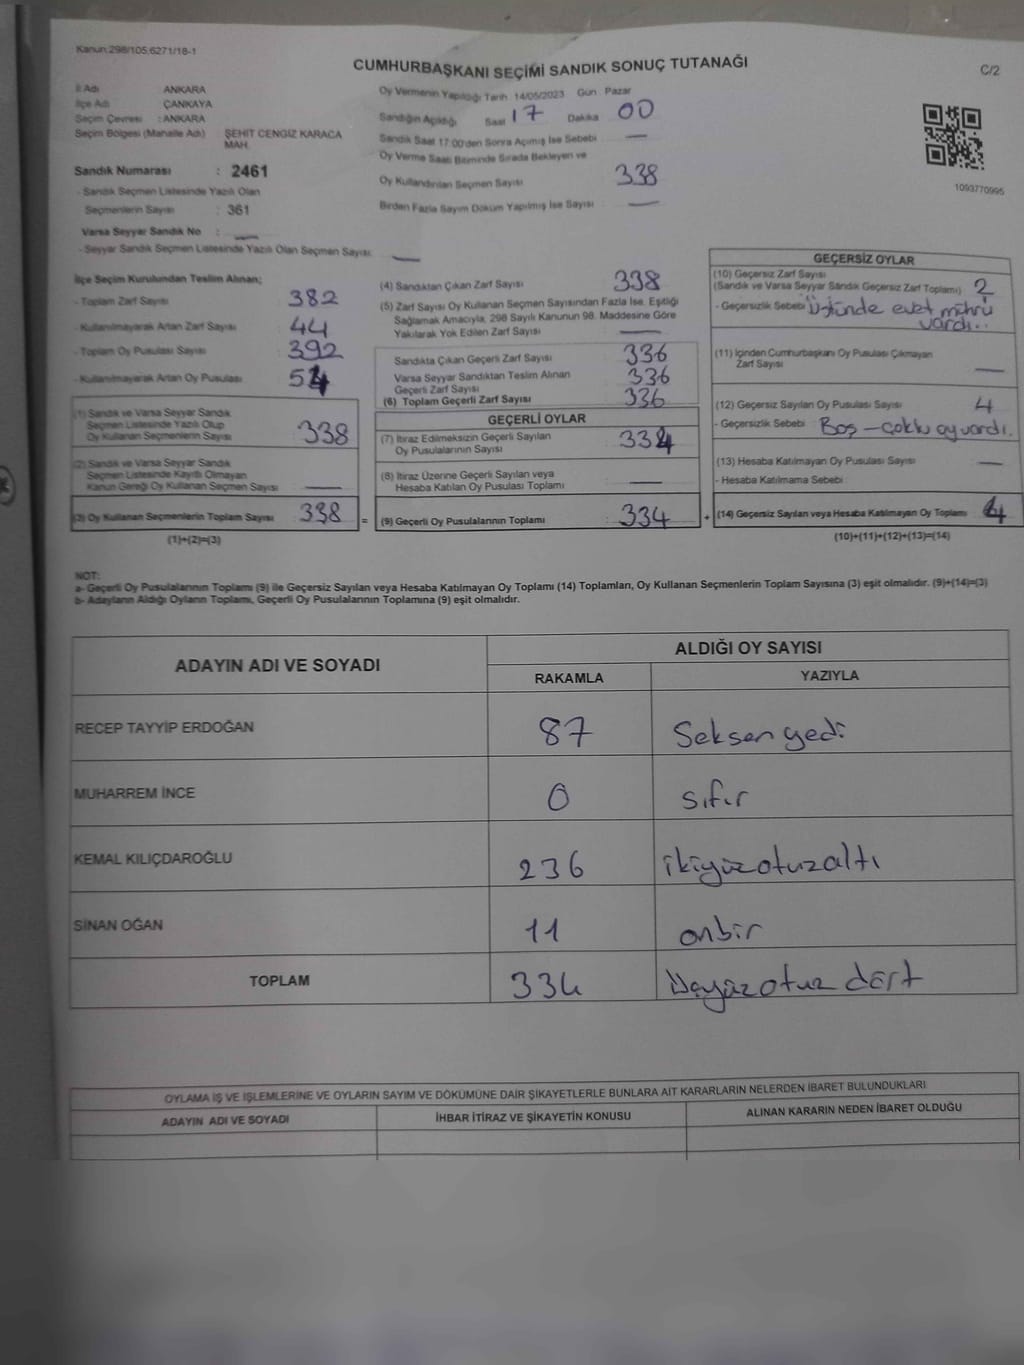 Kanun:298/105,6271/18-1
CUMHURBAŞKANI SEÇİMİ SANDIK SONUÇ TUTANAĞI
C/2
İl Adı ANKARA
İlçe Adı ÇANKAYA
Seçim Çevresi : ANKARA
Seçim Bölgesi (Mahalle Adı) : ŞEHİT CENGİZ KARACA
MAH.
Sandık Numarası : 2461
- Sandık Seçmen Listesinde Yazılı Olan
Seçmenlerin Sayısı : 361
Varsa Seyyar Sandık No : —
- Seyyar Sandık Seçmen Listesinde Yazılı Olan Seçmen Sayısı: —
Oy Vermenin Yapıldığı Tarih 14/05/2023 Gün Pazar
Sandığın Açıldığı Saat 17 Dakika 00
Sandık Saat 17:00'den Sonra Açılmış İse Sebebi —
Oy Verme Saati Bitiminde Sırada Bekleyen ve
Oy Kullandırılan Seçmen Sayısı 338
Birden Fazla Sayım Döküm Yapılmış İse Sayısı —
1093770995
İlçe Seçim Kurulundan Teslim Alınan;
- Toplam Zarf Sayısı 382
- Kullanılmayarak Artan Zarf Sayısı 44
- Toplam Oy Pusulası Sayısı 392
- Kullanılmayarak Artan Oy Pusulası 54
(1) Sandık ve Varsa Seyyar Sandık
Seçmen Listesinde Yazılı Olup
Oy Kullanan Seçmenlerin Sayısı 338
(2) Sandık ve Varsa Seyyar Sandık
Seçmen Listesinde Kayıtlı Olmayan
Kanun Gereği Oy Kullanan Seçmen Sayısı —
(3) Oy Kullanan Seçmenlerin Toplam Sayısı 338 =
(1)+(2)=(3)
(4) Sandıktan Çıkan Zarf Sayısı 338
(5) Zarf Sayısı Oy Kullanan Seçmen Sayısından Fazla İse, Eşitliği
Sağlamak Amacıyla, 298 Sayılı Kanunun 98. Maddesine Göre
Yakılarak Yok Edilen Zarf Sayısı : —
Sandıkta Çıkan Geçerli Zarf Sayısı : 336
Varsa Seyyar Sandıktan Teslim Alınan
Geçerli Zarf Sayısı : 336
(6) Toplam Geçerli Zarf Sayısı : 336
GEÇERLİ OYLAR
(7) İtiraz Edilmeksizin Geçerli Sayılan
Oy Pusulalarının Sayısı : 334
(8) İtiraz Üzerine Geçerli Sayılan veya
Hesaba Katılan Oy Pusulası Toplamı : —
(9) Geçerli Oy Pusulalarının Toplamı : 334 +
GEÇERSİZ OYLAR
(10) Geçersiz Zarf Sayısı
(Sandık ve Varsa Seyyar Sandık Geçersiz Zarf Toplamı) : 2
- Geçersizlik Sebebi : Üstünde evet mührü
vardı..
(11) İçinden Cumhurbaşkanı Oy Pusulası Çıkmayan
Zarf Sayısı : —
(12) Geçersiz Sayılan Oy Pusulası Sayısı : 4
- Geçersizlik Sebebi : Boş - çoklu oy vardı.
(13) Hesaba Katılmayan Oy Pusulası Sayısı : —
- Hesaba Katılmama Sebebi :
(14) Geçersiz Sayılan veya Hesaba Katılmayan Oy Toplamı : 4
(10)+(11)+(12)+(13)=(14)
NOT:
a- Geçerli Oy Pusulalarının Toplamı (9) ile Geçersiz Sayılan veya Hesaba Katılmayan Oy Toplamı (14) Toplamları, Oy Kullanan Seçmenlerin Toplam Sayısına (3) eşit olmalıdır. (9)+(14)=(3)
b- Adayların Aldığı Oyların Toplamı, Geçerli Oy Pusulalarının Toplamına (9) eşit olmalıdır.
ADAYIN ADI VE SOYADI ALDIĞI OY SAYISI
RAKAMLA YAZIYLA
RECEP TAYYİP ERDOĞAN 87 Seksen yedi
MUHARREM İNCE 0 sıfır
KEMAL KILIÇDAROĞLU 236 ikiyüzotuzaltı
SİNAN OĞAN 11 onbir
TOPLAM 334 Üçyüzotuz dört
OYLAMA İŞ VE İŞLEMLERİNE VE OYLARIN SAYIM VE DÖKÜMÜNE DAİR ŞİKAYETLERLE BUNLARA AİT KARARLARIN NELERDEN İBARET BULUNDUKLARI
ADAYIN ADI VE SOYADI İHBAR İTİRAZ VE ŞİKAYETİN KONUSU ALINAN KARARIN NEDEN İBARET OLDUĞU